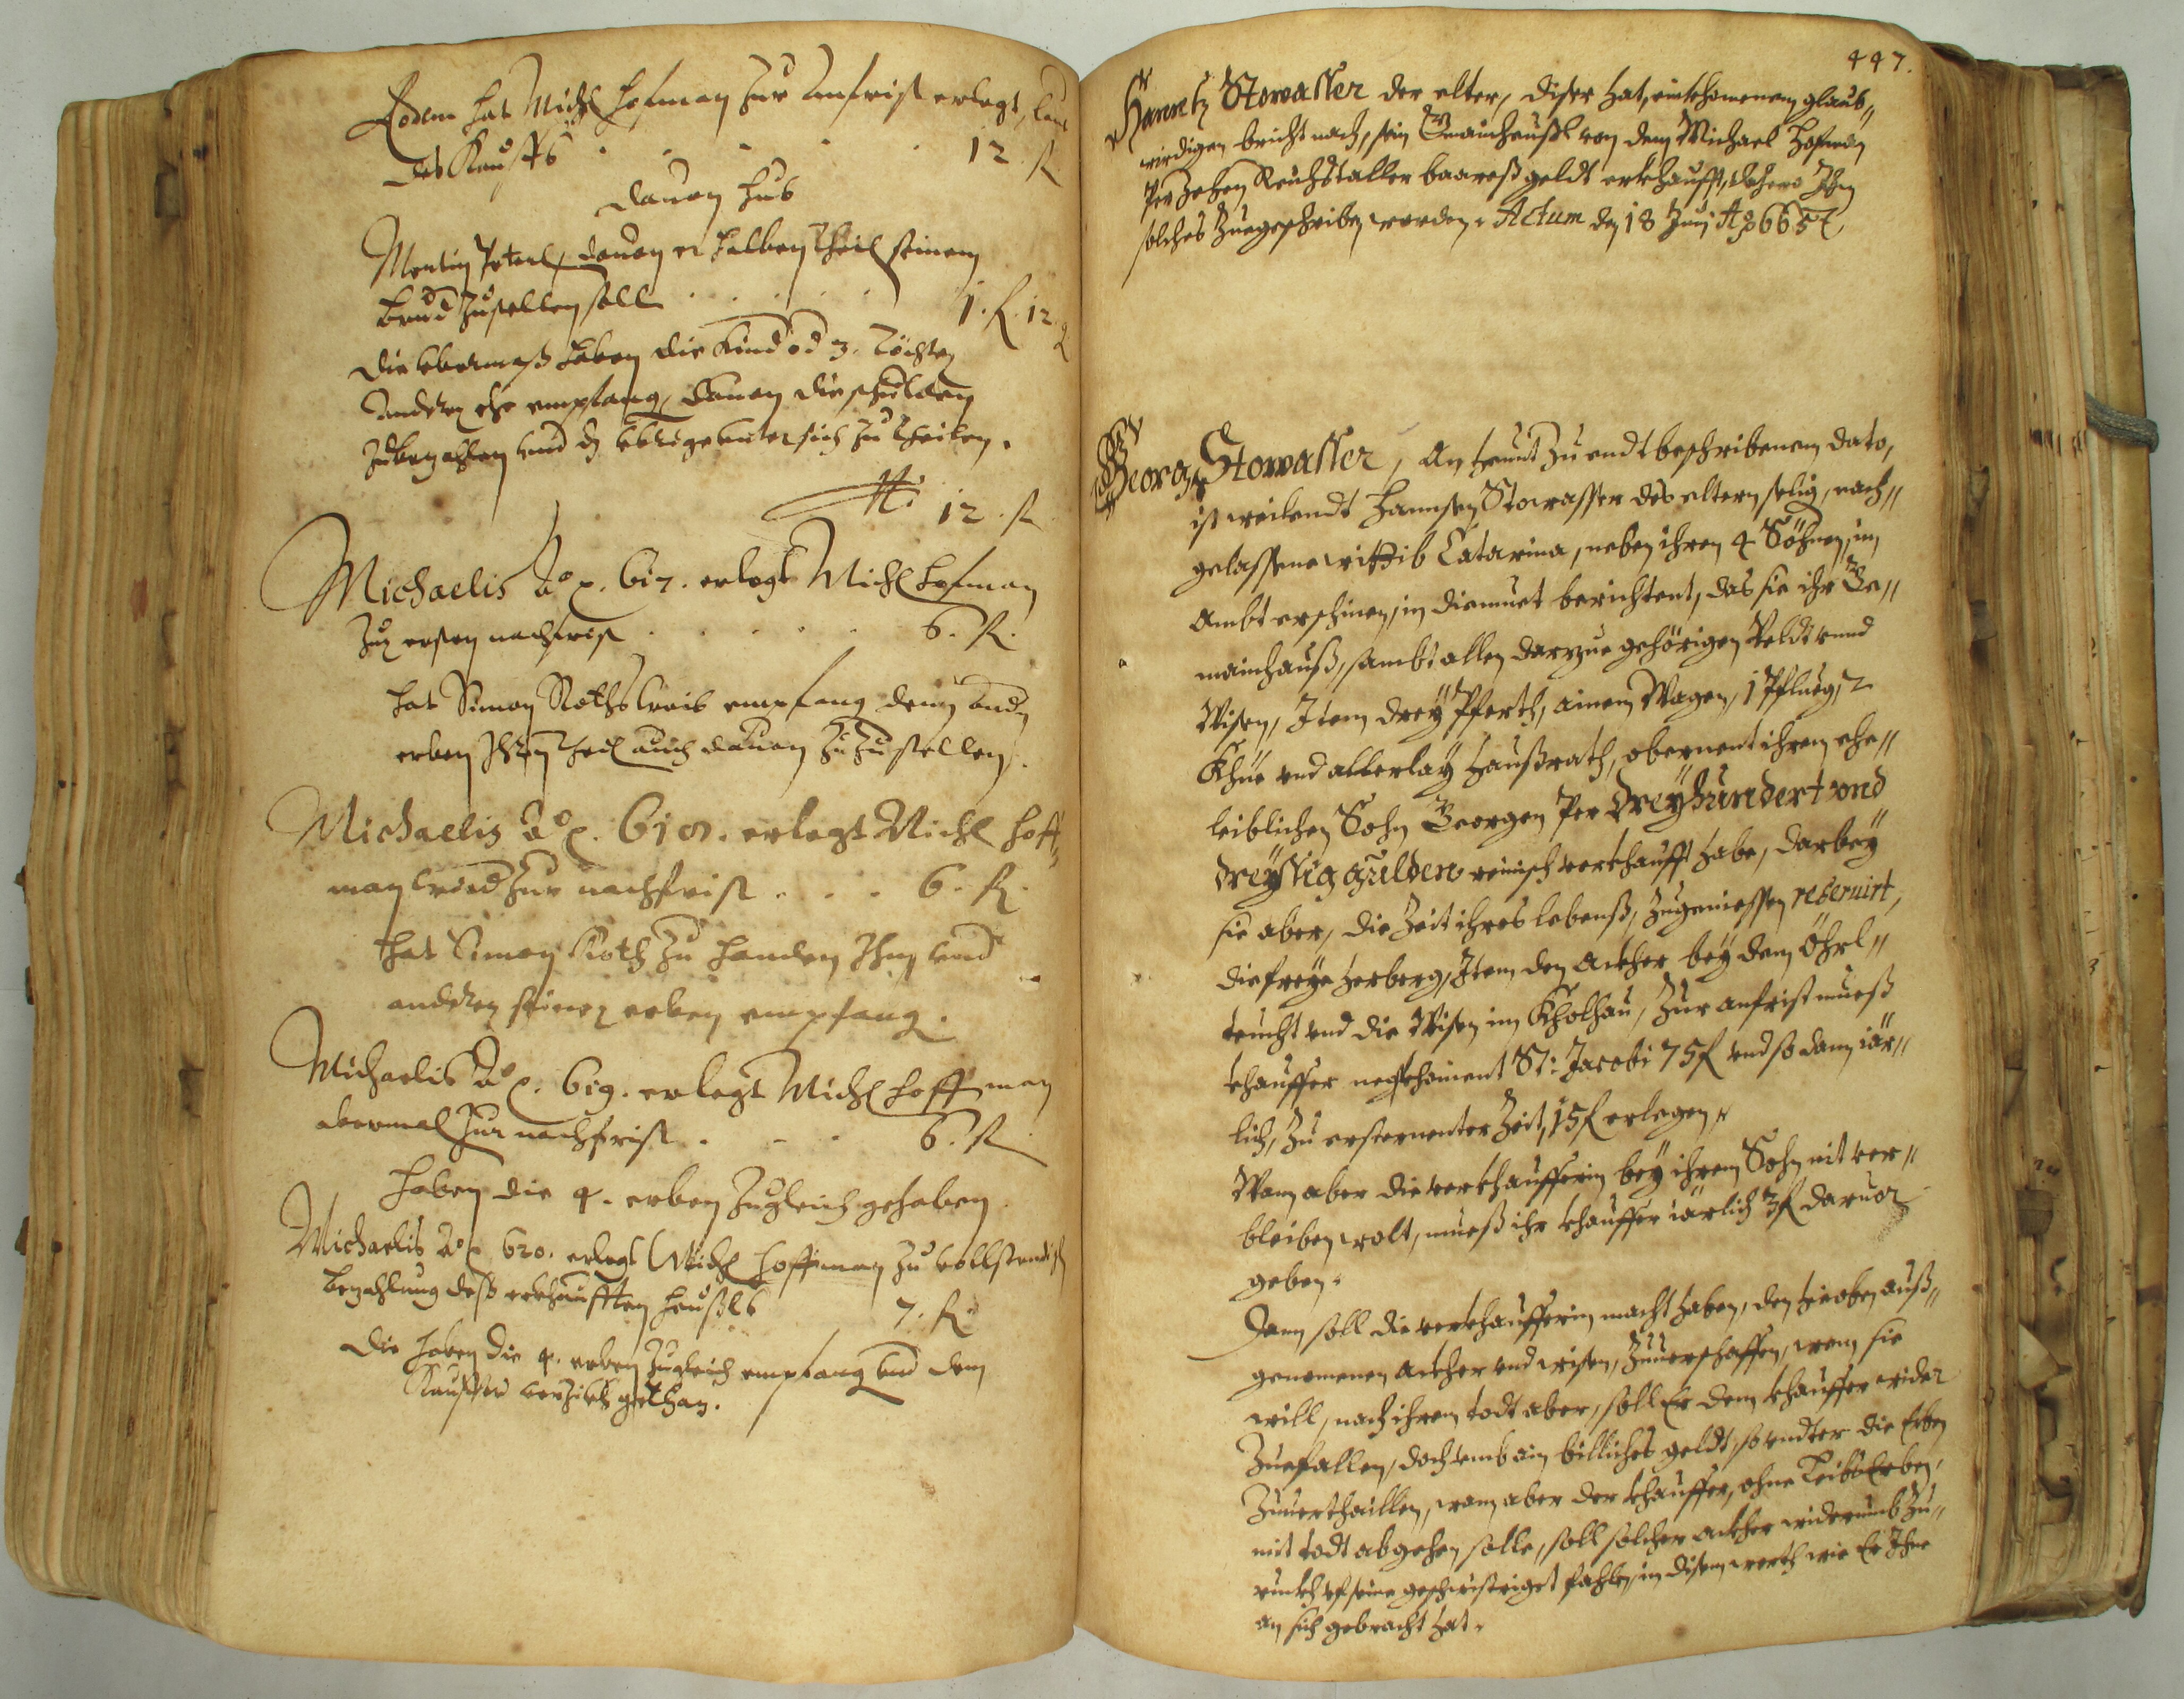 Eodem hat Michl Hofman zur Anfrist erlegt, laut
des Kauffs . . . . . 12. fl
dauon hub
Mertin Peterl, dauon er halben theil seinem
brud zustellen soll . . . . . 1. fl. 12
die vbermaß haben die Kind od 3. Töchter
anderer ehe empfang, dauon die schulden
zubezahlen und dz vbrige unter sich zu theilen.
12. fl
Michaelis Aõ p. 617. erlegt Michl Hofman
zur ersten nachfrist . . . . . 6. fl.
hat Simon Roths weib empfang denen andn
erben Ihren theil auch dauon zuzustellen.
Michaelis Aõ p. 618. erlegt Michl Hoff-
man wied zur nachfrist . . . . 6. fl.
hat Simon Roth zu handen Ihm und
anderen seinen erben empfang.
Michaelis Aõ p. 619. erlegt Michl Hoffman
abermal zur nachfrist . . . . 6. fl
haben die 4. erben zugleich gehaben
Michaelis Aõ p 620. erlegt Michl Hoffman zu vollstendig
bezahlung deß erkhaufften heußls 7. fl.
die haben die 4. erben zugleich empfang und dem
Kauffer verzicht gethan.
447.
Hannß Stowasser der elter, diser hat, einkhomenem glaub„
wirdigen bricht nach, sein Gmainheußl von dem Michael Hofman
Per zehen Reichstaller baareß geldt erkhaufft, dahero Ihm
solches zuegeschriben worden. Actum den 18 Juni Aõ 665
Georg Stowasser, An heunt zu endt beschribenem dato,
ist weilendt Hannsen Stowasser des eltern selig, nach„
gelassene wittib Catarina, neben ihren 4 Söhnen, im
Ambt erschinen, in diemuet berichtent, das sie ihr Ge„
mainhauß, sambt allen darzue gehörigen Veldt unnd
Wisen, Item drey Pferth, ainem Wagen, 1 Pflueg, 2
Khüe und allerlay Haußrath, obernent ihrem ehe„
leiblichen Sohn Georgen Per dreyhundert vnd
dreyssig gulden reinisch verkhaufft habe, darbey
sie aber, die Zeit ihres lebenß, zugeniessen reseruirt,
die freye herberg, Item den Ackher bey dem Öhrl„
teucht und die Wisen im Kholhau, Zur anfrist mueß
khauffer negstkhoment St: Jacobi 75 fl und so dann iär„
lich, zu ersternenter Zeit, 15 fl erlegen.
Wann aber die verkhaufferin bey ihrem Sohn nit ver„
bleiben wolt, mueß ihr khauffer iärlich 3 fl daruor
geben.
Dann soll die verkhaufferin macht haben, den hieoben auß„
genomenen Ackher und wisen, zuuerschaffen, wem sie
will, nach ihrem todt aber, soll Er dem khauffer wider
Zuefallen, doch umb ein billiches geldt, so undter die Erben
Zuuerthaillen, wann aber der khauffer, ohne LeibsErben,
mit todt abgehen solle, soll solcher Ackher widerumb zu„
ruckh uf seine geschwistriget fahlen, in disem werth wie Er Ihne
an sich gebracht hat.